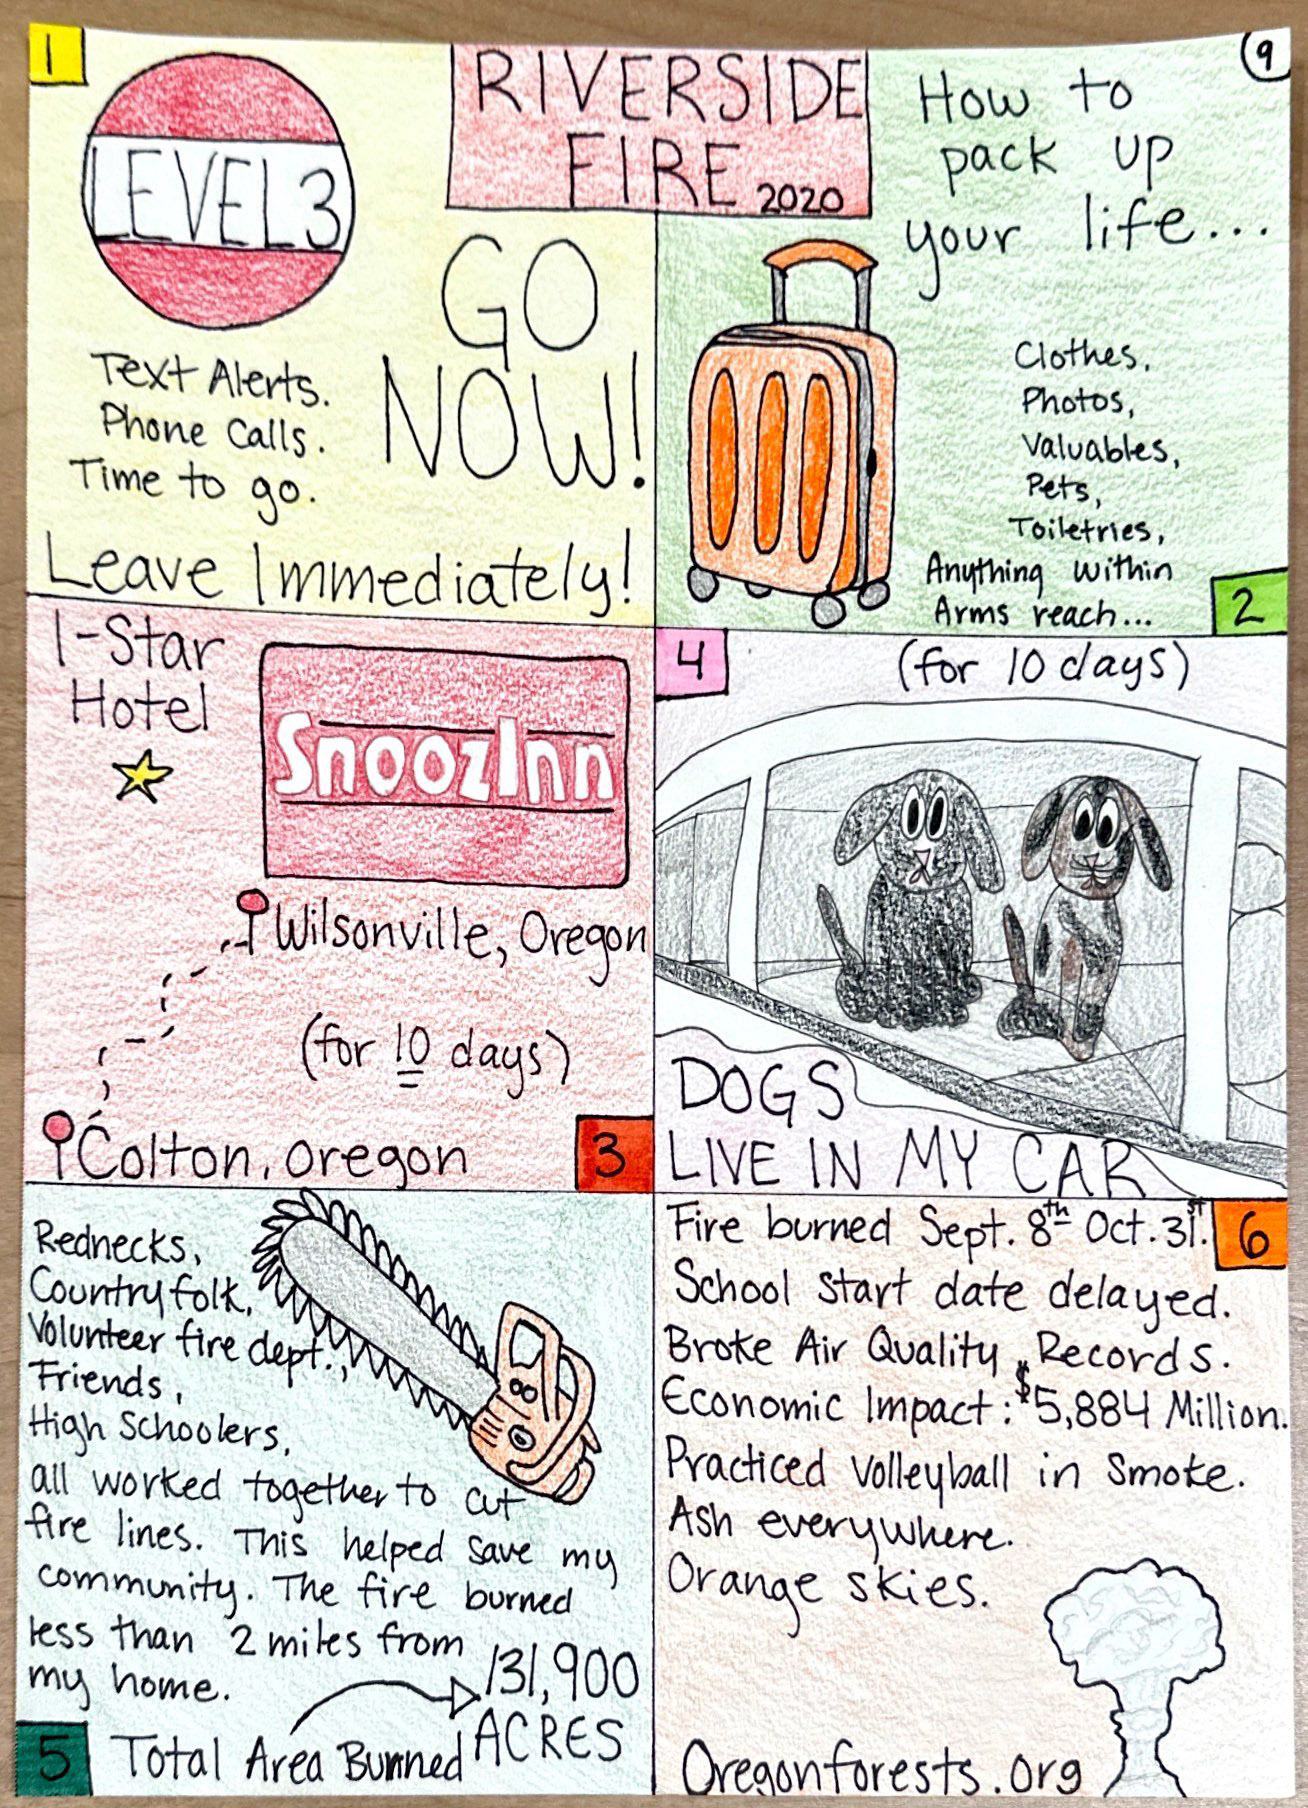 9
RIVERSIDE
FIRE 2020
1
LEVEL 3
GO
NOW!
Text Alerts.
Phone Calls.
Time to go.
Leave Immediately!
How to
pack up
your life...
Clothes,
Photos,
Valuables,
Pets,
Toiletries,
Anything within
Arms reach...
2
1-Star
Hotel
SnoozInn
Wilsonville, Oregon
(for 10 days)
Colton, Oregon
3
4
(for 10 days)
DOGS
LIVE IN MY CAR
Rednecks,
Country folk,
Volunteer fire dept.,
Friends,
High Schoolers,
all worked together to cut
fire lines. This helped save my
community. The fire burned
less than 2 miles from
my home.
131,900
ACRES
5
Total Area Burned
Fire burned Sept. 8th- Oct. 31st.
6
School start date delayed.
Broke Air Quality Records.
Economic Impact: $5,884 Million.
Practiced Volleyball in Smoke.
Ash everywhere.
Orange skies.
Oregonforests.org